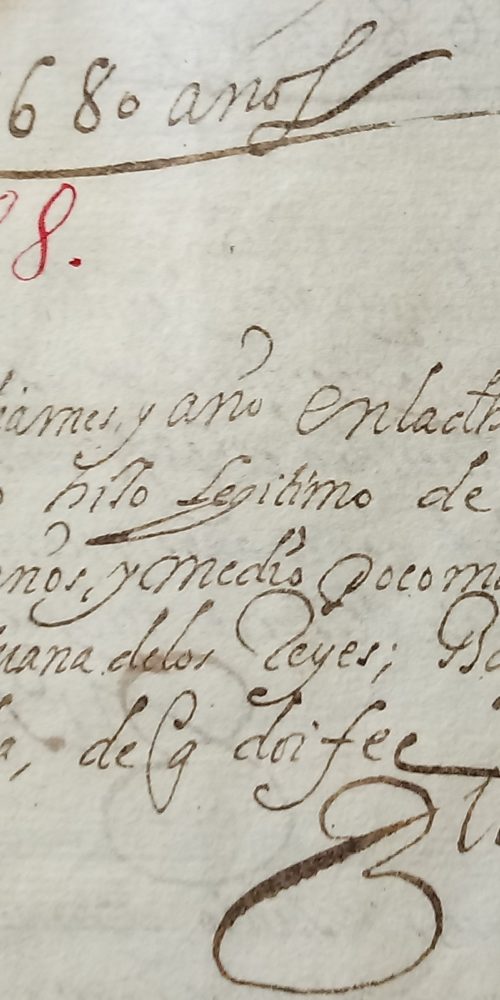 1680 años
8.
dia mes, y año En la cth
hijo legitimo de
años, y medio Poco m
Juana de los Reyes; Ba
de q doi fee